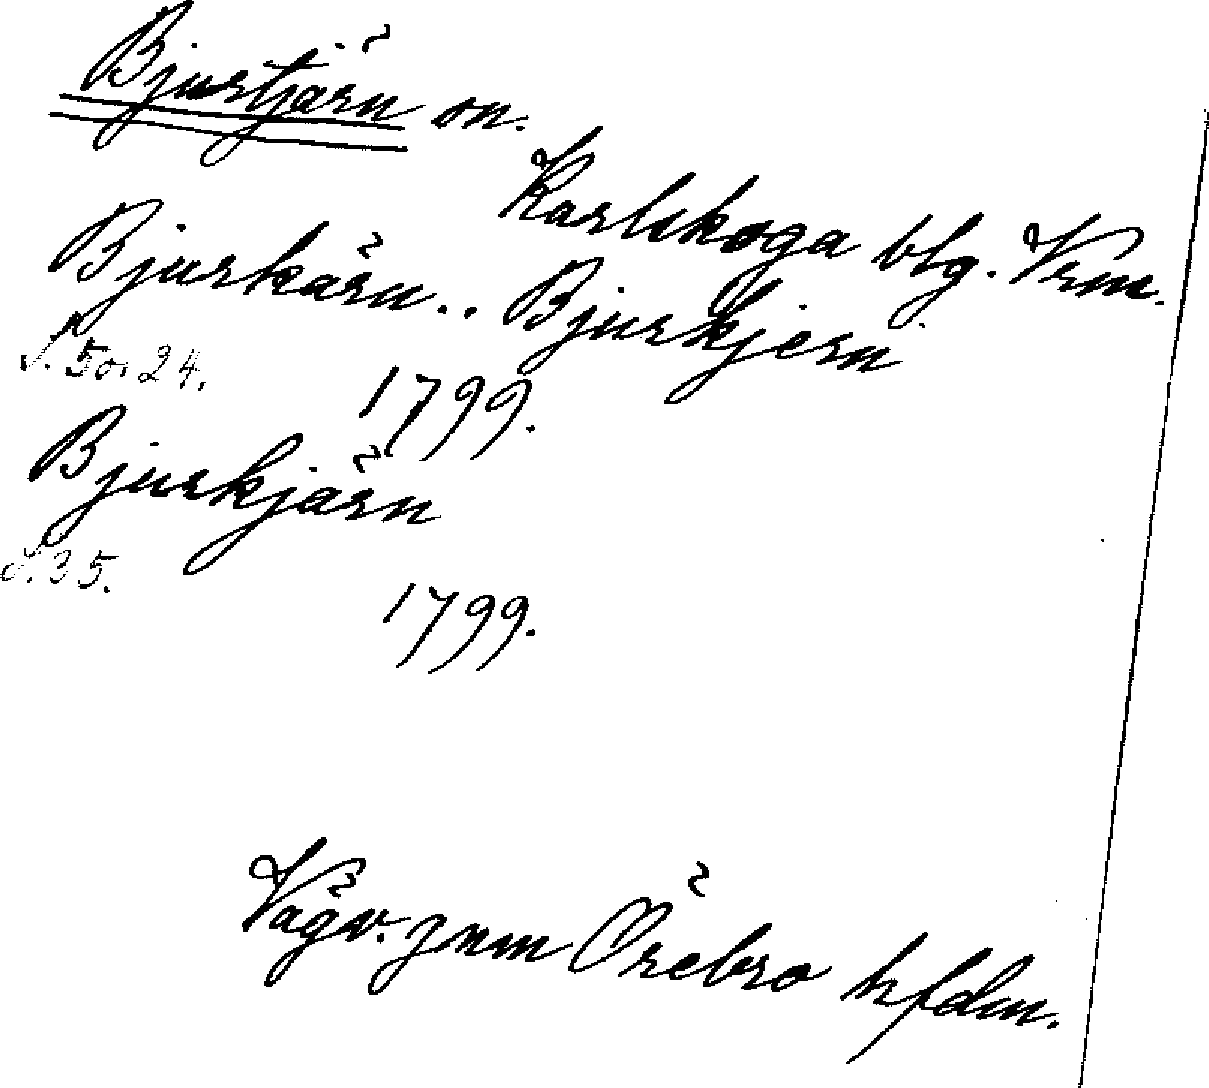 Bjurtjärn on.
Karlskoga blg. Vrm.
Bjurkärn.. Bjurkjern
S. 5 o. 24.
1799.
Bjurkjärn
S. 35.
1799.
Vägv. gnm Örebro hfdm.